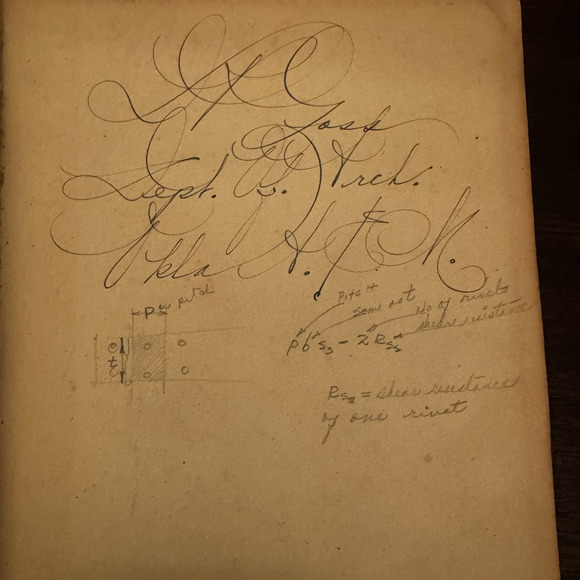 Goss
Dept. of Arch.
Okla A. & M.
P = pitch
pitch
same as t
No of rivets
shear resistance
Pb's₃ - 2 Rss
Rss = shear resistance
of one rivet